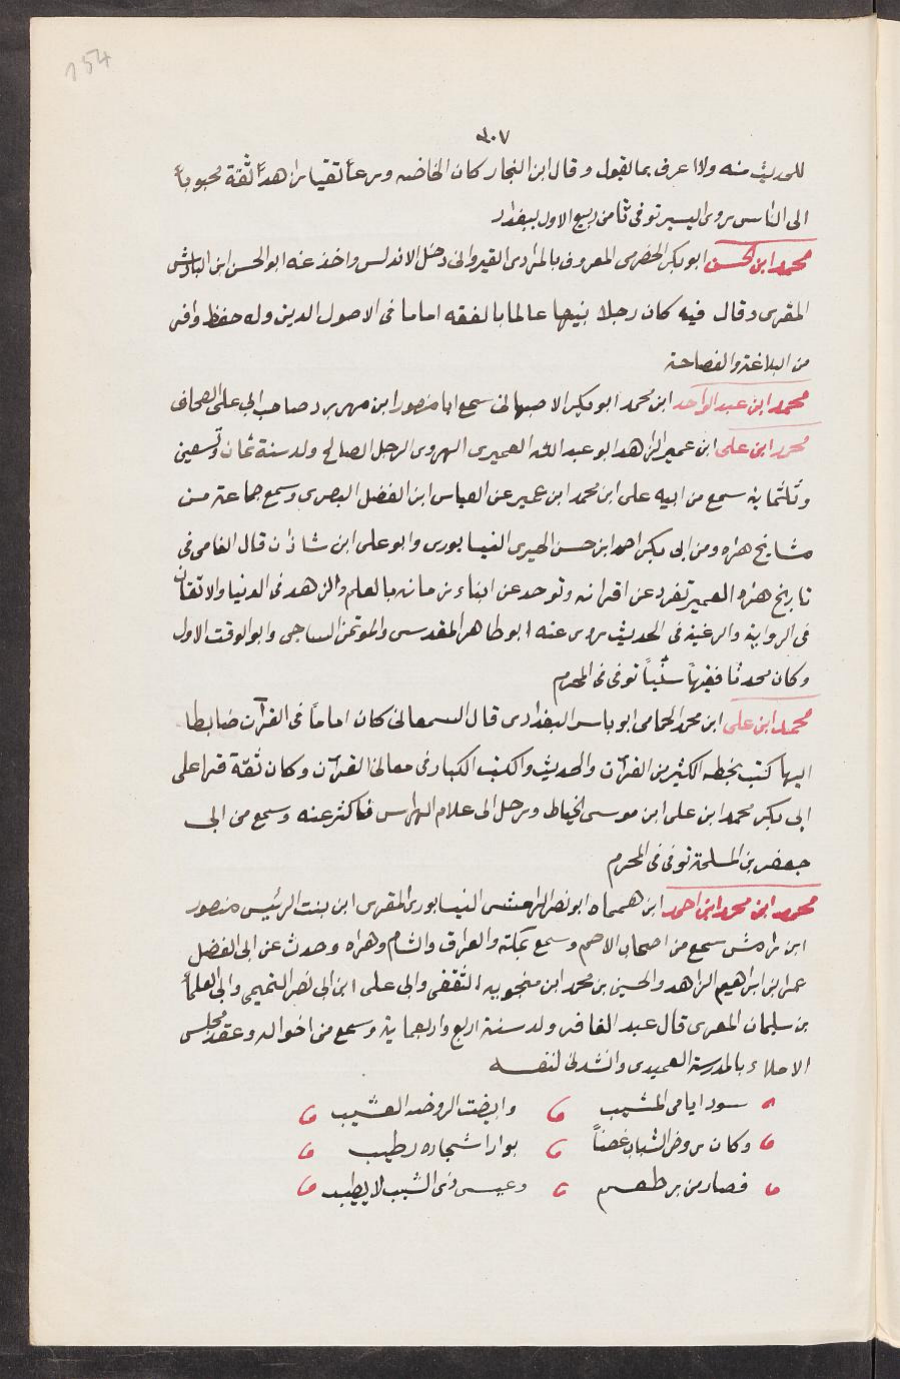 154
٣٠٧
للحديث منه ولا اعرف بما يقول وقال ابن النجار كان الخاضبه ورعاً تقيا زاهداً ثقة محبوباً
الى الناس روى اليسير توفى ثامن ربيع الاول ببغداد
محمد ابن الحسن ابو بكر الحضرمى المعروف بالمرادى القيروانى دخل الاندلس واخذ عنه ابو الحسن ابن الباذش
المقرى وقال فيه كان رجلا نبيها عالما بالفقه اماما فى الاصول الدين وله حفظ وافر
من البلاغة والفصاحة
محمد ابن عبد الواحد ابن محمد ابو بكر الاصبهانى سمع ابا منصور ابن مهريزد صاحب ابى على الصحاف
محمد ابن على ابن عمير الزاهد ابو عبد الله العميرى الهروى الرجل الصالح ولد سنة ثمان وتسعين
وثلثماية سمع من ابيه على ابن محمد ابن عمير عن العباس ابن الفضل البصرى وسمع جماعة من
مشايخ هراه ومن ابى بكر احمد ابن حسن الحيرى النيسابورى وابو على ابن شاذان قال الفامى فى
تاريخ هراه العمير تفرد عن اقرانه وتوحد عن ابناء زمانه بالعلم والزهد فى الدنيا والاتقان
فى الرواية والرغبة فى الحديث روى عنه ابو طاهر المقدسى والموتمن الساجى وابو الوقت الاول
وكان محدثا فقيهاً سنّياً توفى فى المحرم
محمد ابن على ابن محمد الحامى ابو ياسر البغدادى قال السمعانى كان اماماً فى القرآن ضابطا
اليها كتب بخطه الكثير من القرآن والحديث والكتب الكبار فى معانى القرآن وكان ثقة قرا على
ابى بكر محمد ابن على ابن موسى الخياط ورحل الى غلام الهراس فاكثر عنه وسمع من ابى
جعفر بن المسلمة توفى فى المحرم
محمد ابن محمد ابن احمد ابن هميماه ابو نصر الرامشى النيسابورى المقرى ابن بنت الرئيس منصور
ابن رامش سمع من اصحاب الاصم وسمع بمكة والعراق والشام وهراه وحدث عن ابى الفضل
عمر ابن ابراهيم الزاهد والحسين بن محمد ابن منجويه الثقفى وابى على ابن ابى نصر التميمى وابى العلآ
بن سليمان المعرى قال عبد الغافر ولد سنة اربع واربعماية وسمع من اخواله وعقد مجلس
الاملاء بالمدرسة العميدى وانشدنى لنفسه
سود ايامى المشيب وابيضت الروضه العشيب
وكان روض الشباب غضاً بوار اشجاره رطيب
فصار من برطعم وعيش ذى الشيب لا يطيب